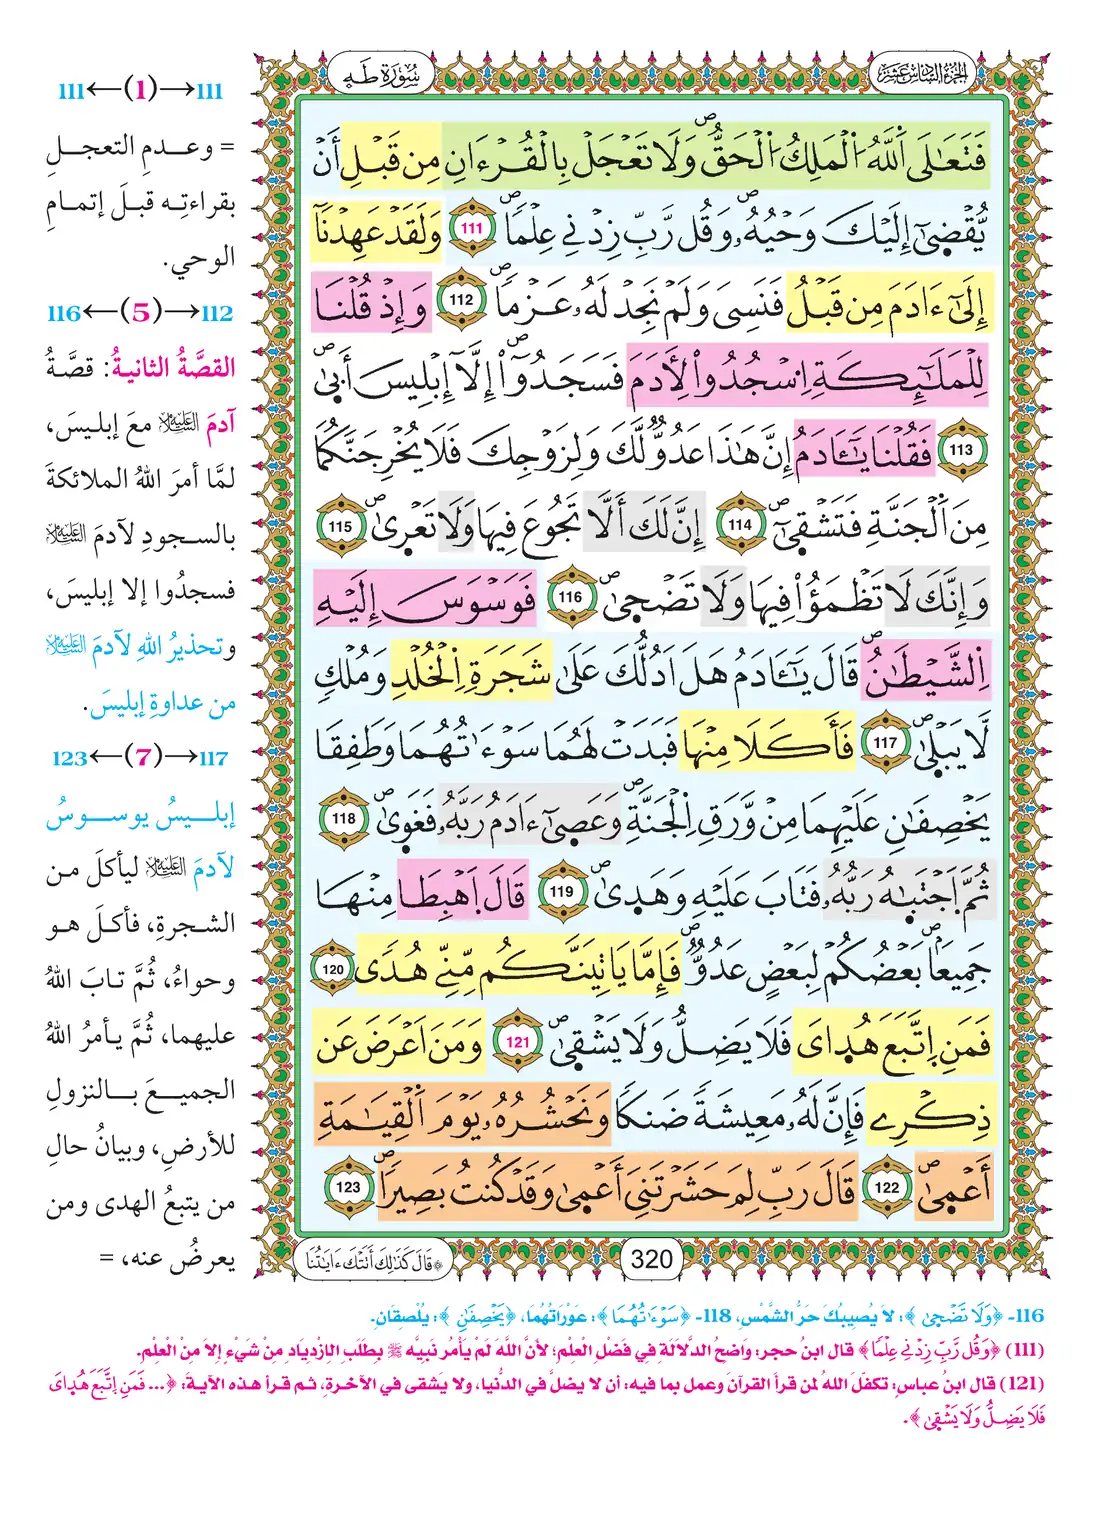 سُورَةُ طَهَ
الجُزْءُ السَّادِسَ عَشَرَ
فَتَعَٰلَى اَ۬للَّهُ اُ۬لْمَلِكُ اُ۬لْحَقُّۖ وَلَا تَعْجَلْ بِالْقُرْءَانِ مِن قَبْلِ أَنْ
يُّقْضَىٰٓ إِلَيْكَ وَحْيُهُۥۖ وَقُل رَّبِّ زِدْنِے عِلْماٗۖ 111 وَلَقَدْ عَهِدْنَآ
إِلَىٰٓ ءَادَمَ مِن قَبْلُ فَنَسِىَ وَلَمْ نَجِدْ لَهُۥ عَزْماٗۖ 112 وَإِذْ قُلْنَا
لِلْمَلَٰٓئِكَةِ اِ۟سْجُدُواْ لِأٓدَمَ فَسَجَدُوٓاْ إِلَّآ إِبْلِيسَ أَبىٰۖ
113 فَقُلْنَا يَٰٓـَٔادَمُ إِنَّ هَٰذَا عَدُوّٞ لَّكَ وَلِزَوْجِكَ فَلَا يُخْرِجَنَّكُمَا
مِنَ اَ۬لْجَنَّةِ فَتَشْقىٰٓۖ 114 إِنَّ لَكَ أَلَّا تَجُوعَ فِيهَا وَلَا تَعْرىٰۖ 115
وَإِنَّكَ لَا تَظْمَؤُاْ فِيهَا وَلَا تَضْحىٰۖ 116 فَوَسْوَسَ إِلَيْهِ
اِ۬لشَّيْطَٰنُۖ قَالَ يَٰٓـَٔادَمُ هَلَ اَدُلُّكَ عَلَىٰ شَجَرَةِ اِ۬لْخُلْدِ وَمُلْكٖ
لَّا يَبْلىٰۖ 117 فَأَكَلَا مِنْهَا فَبَدَتْ لَهُمَا سَوْءَٰتُهُمَا وَطَفِقَا
يَخْصِفَٰنِ عَلَيْهِمَا مِنْ وَّرَقِ اِ۬لْجَنَّةِۖ وَعَصَىٰٓ ءَادَمُ رَبَّهُۥ فَغَوىٰۖ 118
ثُمَّ اَ۪جْتَبَٰهُ رَبُّهُۥ فَتَابَ عَلَيْهِ وَهَدىٰۖ 119 قَالَ اَ۪هْبِطَا مِنْهَا
جَمِيعاَۢۖ بَعْضُكُمْ لِبَعْضٍ عَدُوّٞۖ فَإِمَّا يَاتِيَنَّكُم مِّنِّے هُدىٗ 120
فَمَنِ اِ۪تَّبَعَ هُدٜاىَ فَلَا يَضِلُّ وَلَا يَشْقىٰۖ 121 وَمَنَ اَعْرَضَ عَن
ذِكْرِے فَإِنَّ لَهُۥ مَعِيشَةٗ ضَنكاٗ وَنَحْشُرُهُۥ يَوْمَ اَ۬لْقِيَٰمَةِ
أَعْمىٰۖ 122 قَالَ رَبِّ لِمَ حَشَرْتَنِىَ أَعْمىٰ وَقَدْ كُنتُ بَصِيراٗۖ 123
﴿قَالَ كَذَٰلِكَ أَتَتْكَ ءَايَٰتُنَا
320
111←(1)→111
= وعدمِ التعجلِ
بقراءتِه قبلَ إتمامِ
الوحي.
116←(5)→112
القصَّةُ الثانيةُ: قصَّةُ
آدمَ عليه السلام معَ إبليسَ،
لمَّا أمرَ اللهُ الملائكةَ
بالسجودِ لآدمَ عليه السلام
فسجدُوا إلا إبليسَ،
وتحذيرُ اللهِ لآدمَ عليه السلام
من عداوةِ إبليسَ.
123←(7)→117
إبليسُ يوسوسُ
لآدمَ عليه السلام ليأكلَ من
الشجرةِ، فأكلَ هو
وحواءُ، ثُمَّ تابَ اللهُ
عليهما، ثُمَّ يأمرُ اللهُ
الجميعَ بالنزولِ
للأرضِ، وبيانُ حالِ
من يتبعُ الهدى ومن
يعرضُ عنه، =
116- ﴿وَلَا تَضْحىٰ﴾: لا يُصِيبُكَ حَرُّ الشَّمْسِ، 118- ﴿سَوْءَٰتُهُمَا﴾: عَوْرَاتُهُمَا، ﴿يَخْصِفَٰنِ﴾: يُلْصِقَانِ.
(111) ﴿وَقُل رَّبِّ زِدْنِے عِلْماٗ﴾ قال ابنُ حجر: وَاضحُ الدَّلَالَةِ فِي فَضْلِ الْعِلْمِ؛ لأنَّ اللَّهَ لَمْ يَأْمُر نَبِيَّه ﷺ بِطَلَبِ الِازْدِيادِ مِنْ شَيْءٍ إلَّا مِنْ الْعِلْمِ.
(121) قال ابنُ عباسٍ: تكفّلَ اللهُ لمن قرأَ القرآنَ وعملَ بما فيه: أن لا يضلَّ في الدُّنيا، ولا يَشقى في الآخرةِ، ثم قرأ هذه الآيةَ: ﴿... فَمَنِ اِ۪تَّبَعَ هُدٜاىَ
فَلَا يَضِلُّ وَلَا يَشْقىٰ﴾.